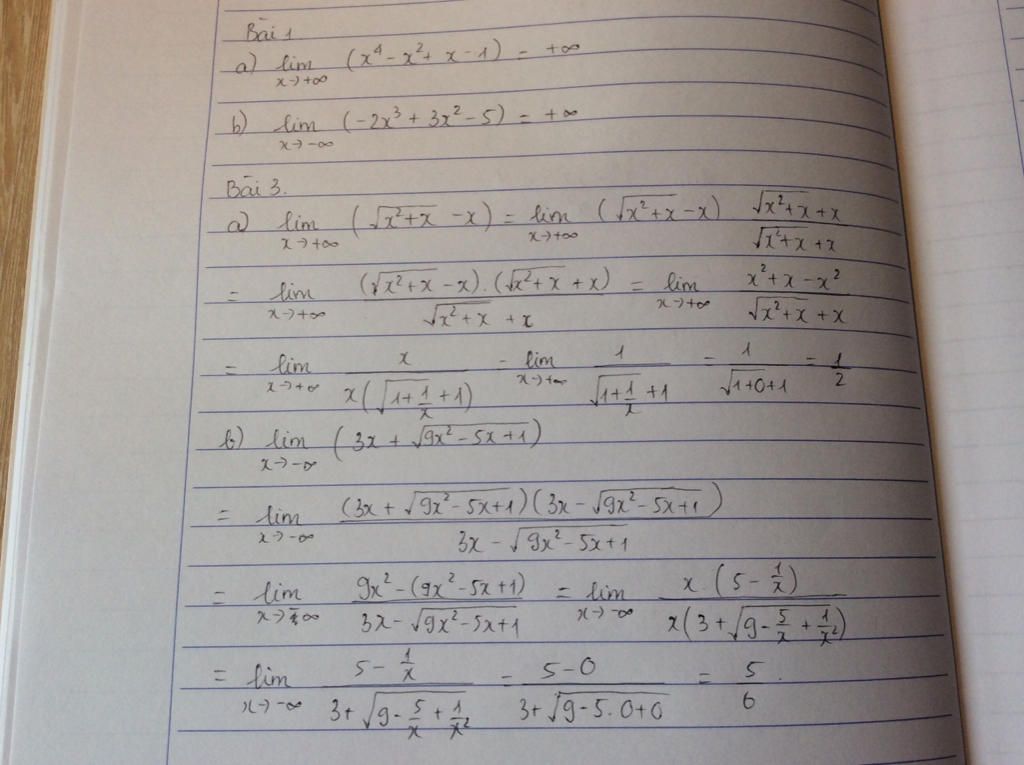 Bài 1
a) lim x→+∞ (x⁴ - x² + x - 1) = +∞
b) lim x→-∞ (-2x³ + 3x² - 5) = +∞
Bài 3.
a) lim x→+∞ (√(x²+x) - x) = lim x→+∞ (√(x²+x) - x) (√(x²+x) + x)/(√(x²+x) + x)
= lim x→+∞ ((√(x²+x) - x).(√(x²+x) + x))/(√(x²+x) + x) = lim x→+∞ (x² + x - x²)/(√(x²+x) + x)
= lim x→+∞ x/(x(√(1+1/x) + 1)) = lim x→+∞ 1/(√(1+1/x) + 1) = 1/(√(1+0) + 1) = 1/2
b) lim x→-∞ (3x + √(9x² - 5x + 1))
= lim x→-∞ ((3x + √(9x² - 5x + 1))(3x - √(9x² - 5x + 1)))/(3x - √(9x² - 5x + 1))
= lim x→-∞ (9x² - (9x² - 5x + 1))/(3x - √(9x² - 5x + 1)) = lim x→-∞ (x.(5 - 1/x))/(x(3 + √(9 - 5/x + 1/x²)))
= lim x→-∞ (5 - 1/x)/(3 + √(9 - 5/x + 1/x²)) = (5 - 0)/(3 + √(9 - 5.0 + 0)) = 5/6